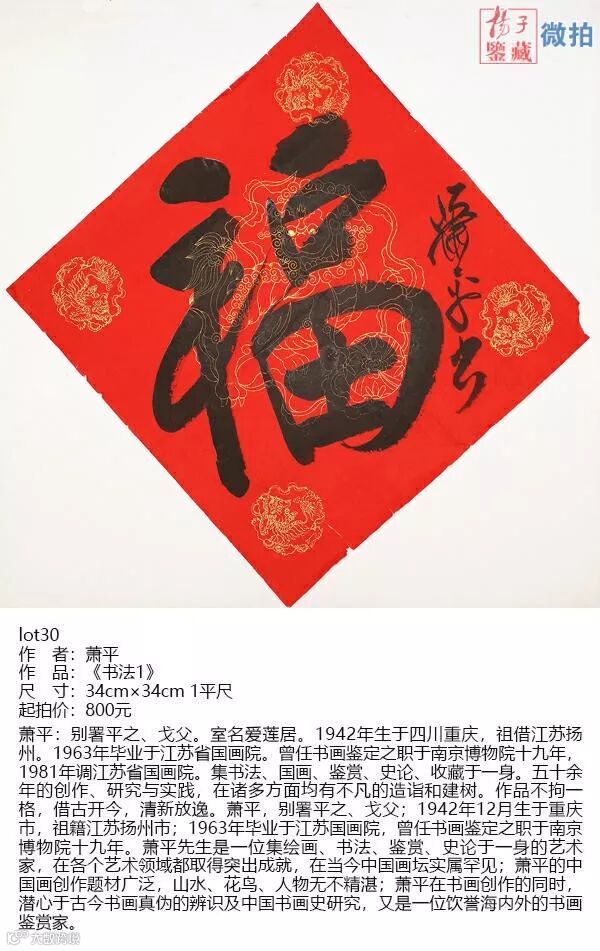 揚子
鑒藏
微拍
福
萧平书
lot30
作 者：萧平
作 品：《书法1》
尺 寸：34cm×34cm 1平尺
起拍价：800元
萧平：别署平之、戈父。室名爱莲居。1942年生于四川重庆，祖借江苏扬
州。1963年毕业于江苏省国画院。曾任书画鉴定之职于南京博物院十九年，
1981年调江苏省国画院。集书法、国画、鉴赏、史论、收藏于一身。五十余
年的创作、研究与实践，在诸多方面均有不凡的造诣和建树。作品不拘一
格，借古开今，清新放逸。萧平，别署平之、戈父；1942年12月生于重庆
市，祖籍江苏扬州市；1963年毕业于江苏国画院，曾任书画鉴定之职于南京
博物院十九年。萧平先生是一位集绘画、书法、鉴赏、史论于一身的艺术
家，在各个艺术领域都取得突出成就，在当今中国画坛实属罕见；萧平的中
国画创作题材广泛，山水、花鸟、人物无不精湛；萧平在书画创作的同时，
潜心于古今书画真伪的辨识及中国书画史研究，又是一位饮誉海内外的书画
鉴赏家。
大数跨境